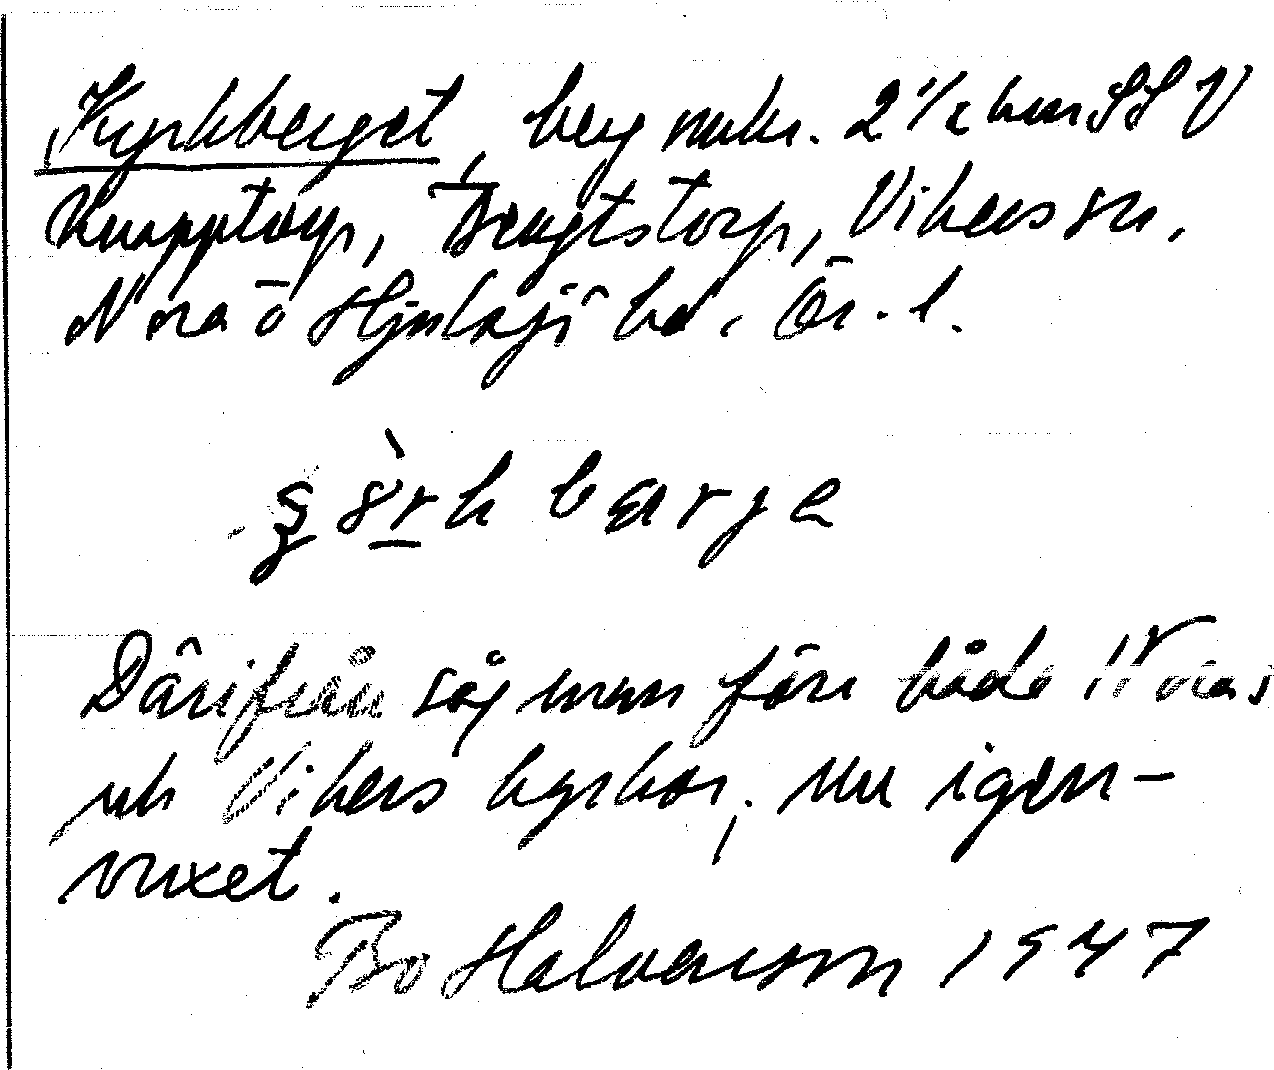 Kyrkberget, berg mkr. 2 1/2 km SSV
Knapptorp, Bengtstorp, Vikers sn,
Nora o Hjulsjö bd. Ör. l.
berge
Därifrån såg man förr både Noras
och Vikers kyrkor, nu igen-
vuxet.
Bo Halvarson 1947